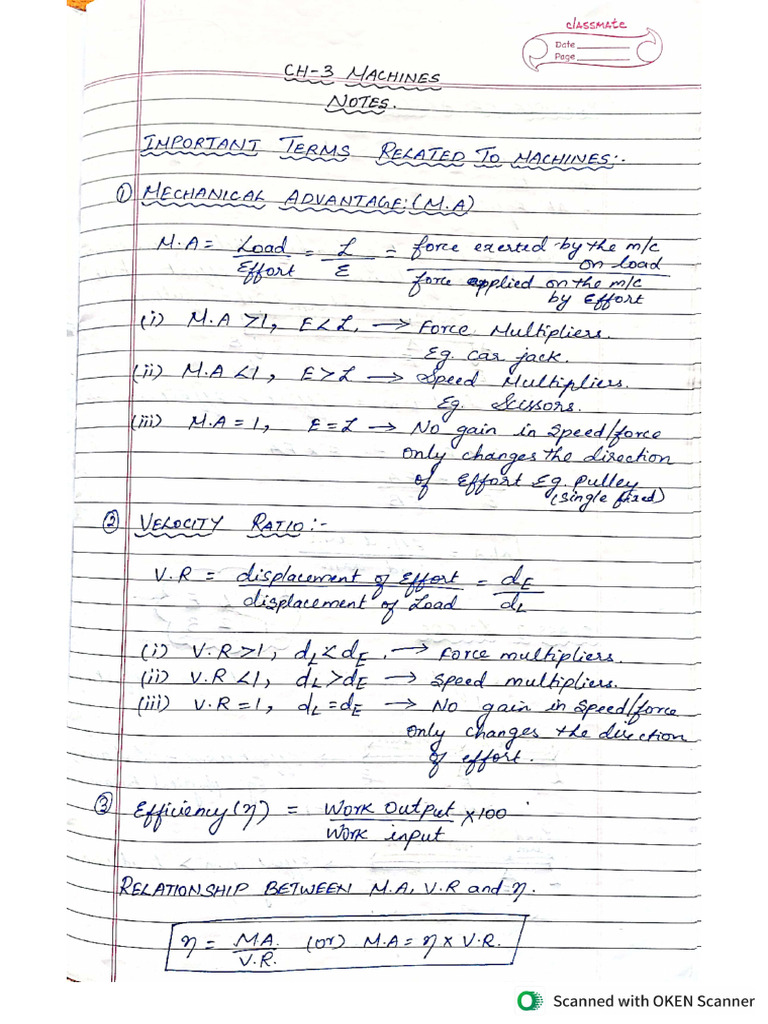 classmate
Date
Page
CH-3 MACHINES
NOTES.
IMPORTANT TERMS RELATED TO MACHINES:-
① MECHANICAL ADVANTAGE:(M.A)
M.A = Load/Effort = L/E = force exerted by the m/c on load/force applied on the m/c by Effort
(i) M.A >1, E<L, → Force Multipliers.
Eg. car jack.
(ii) M.A <1, E>L → Speed Multipliers.
Eg. Scissors.
(iii) M.A = 1, E = L → No gain in speed/force
only changes the direction
of Effort Eg. Pulley
(single fixed)
② VELOCITY RATIO:-
V.R = displacement of Effort/displacement of Load = dE/dL
(i) V.R >1, dL < dE. → Force multipliers.
(ii) V.R <1, dL > dE → Speed multipliers.
(iii) V.R = 1, dL = dE → No gain in speed/force
only changes the direction
of effort.
③ Efficiency (η) = Work Output/Work input ×100
RELATIONSHIP BETWEEN M.A, V.R and η.
η = MA./V.R. (or) M.A = η × V.R.
Scanned with OKEN Scanner